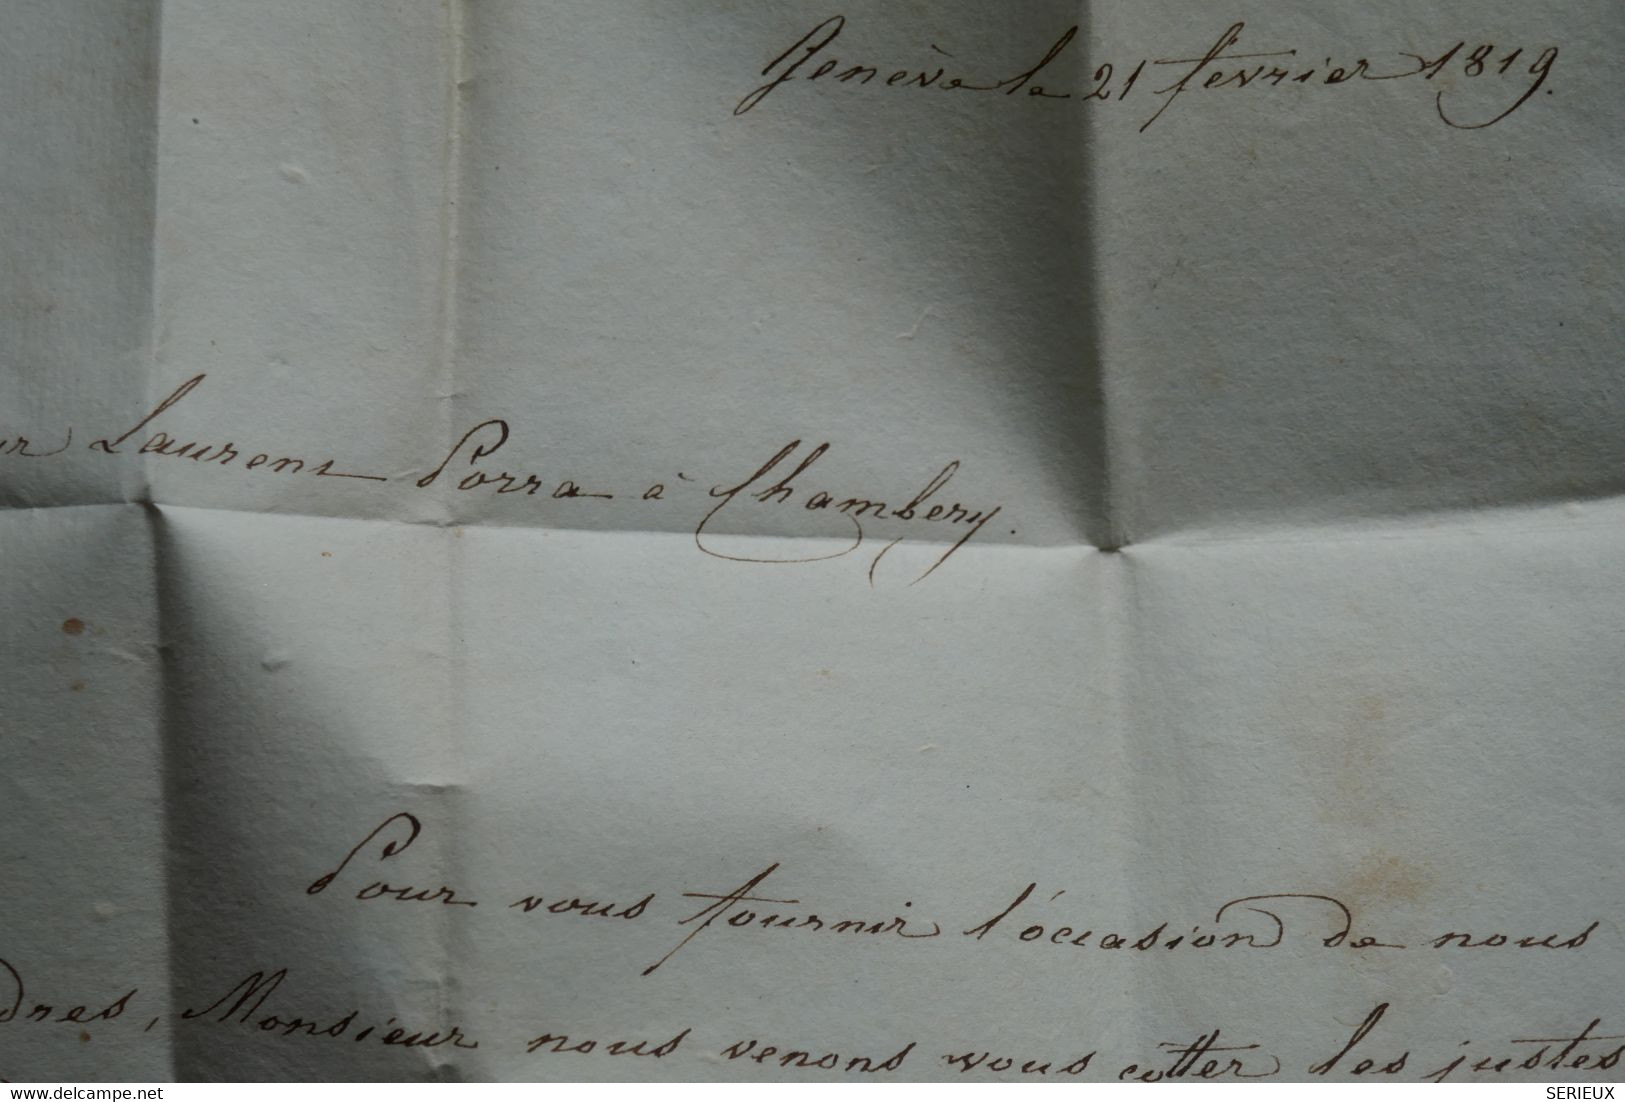 Genève le 21 fevrier 1819.
ur Laurent Porra à Chambery.
Pour vous fournir l'occasion de nous
dres, Monsieur nous venons vous cotter les justes
www.delcampe.net
SERIEUX